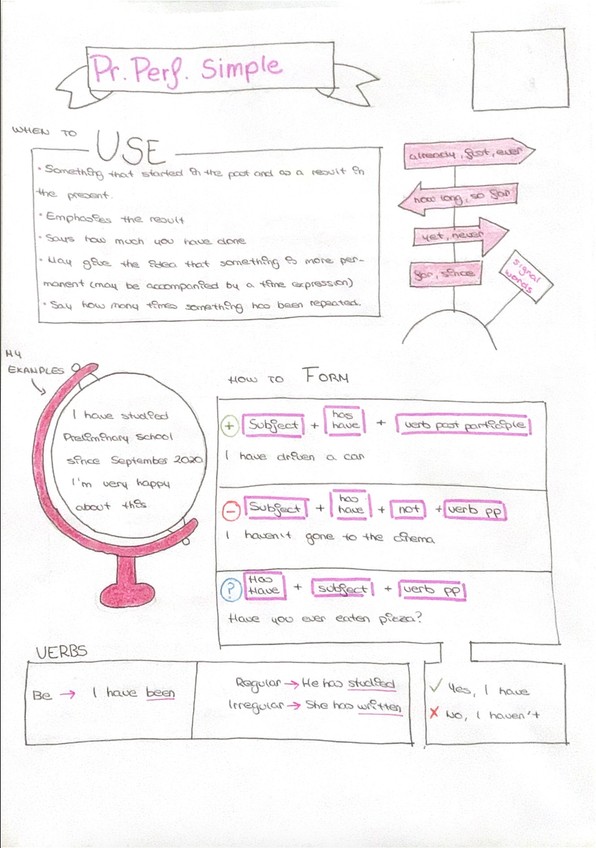 Pr. Perf. Simple
WHEN TO USE
• Something that started in the past and as a result in
the present.
• Emphasies the result
• Says how much you have done
• May give the idea that something is more per-
manent (may be accompanied by a time expression)
• Say how many times something has been repeated.
already, just, ever
how long, so far
yet, never
for, since
signal
words
MY
EXAMPLES
I have studied
Preliminary School
since September 2020
I'm very happy
about this
HOW TO FORM
+ Subject + has have + verb past participle
I have driven a car
- Subject + has have + not + verb pp
I haven't gone to the cinema
? Has Have + subject + verb pp
Have you ever eaten pizza?
✓ Yes, I have
✗ No, I haven't
VERBS
Be → I have been
Regular → He has studied
Irregular → She has written